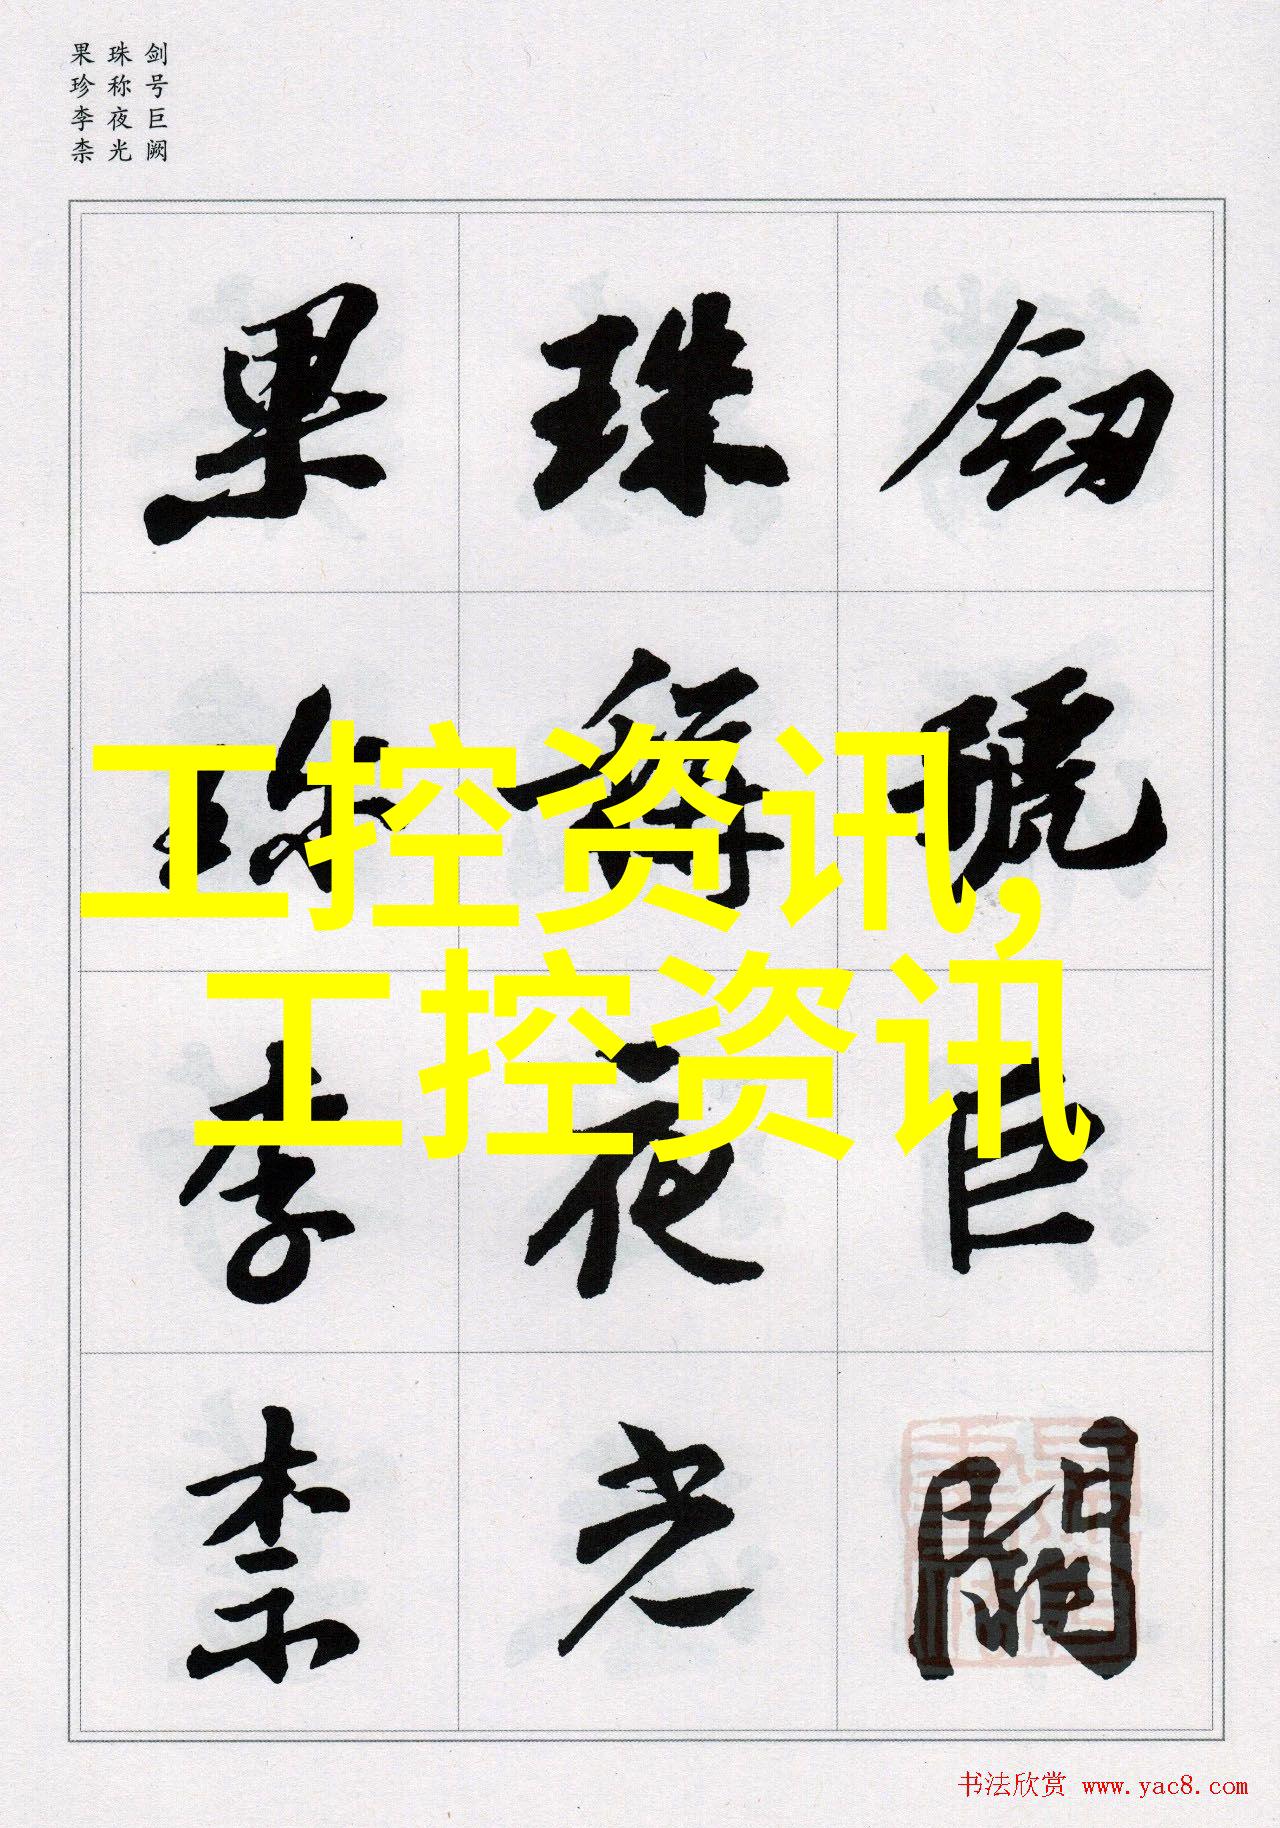 剑号巨阙
珠称夜光
果珍李柰
劒號巨闕
珠稱夜光
果珍李柰
工控资讯,
工控资讯
书法欣赏 www.yac8.com